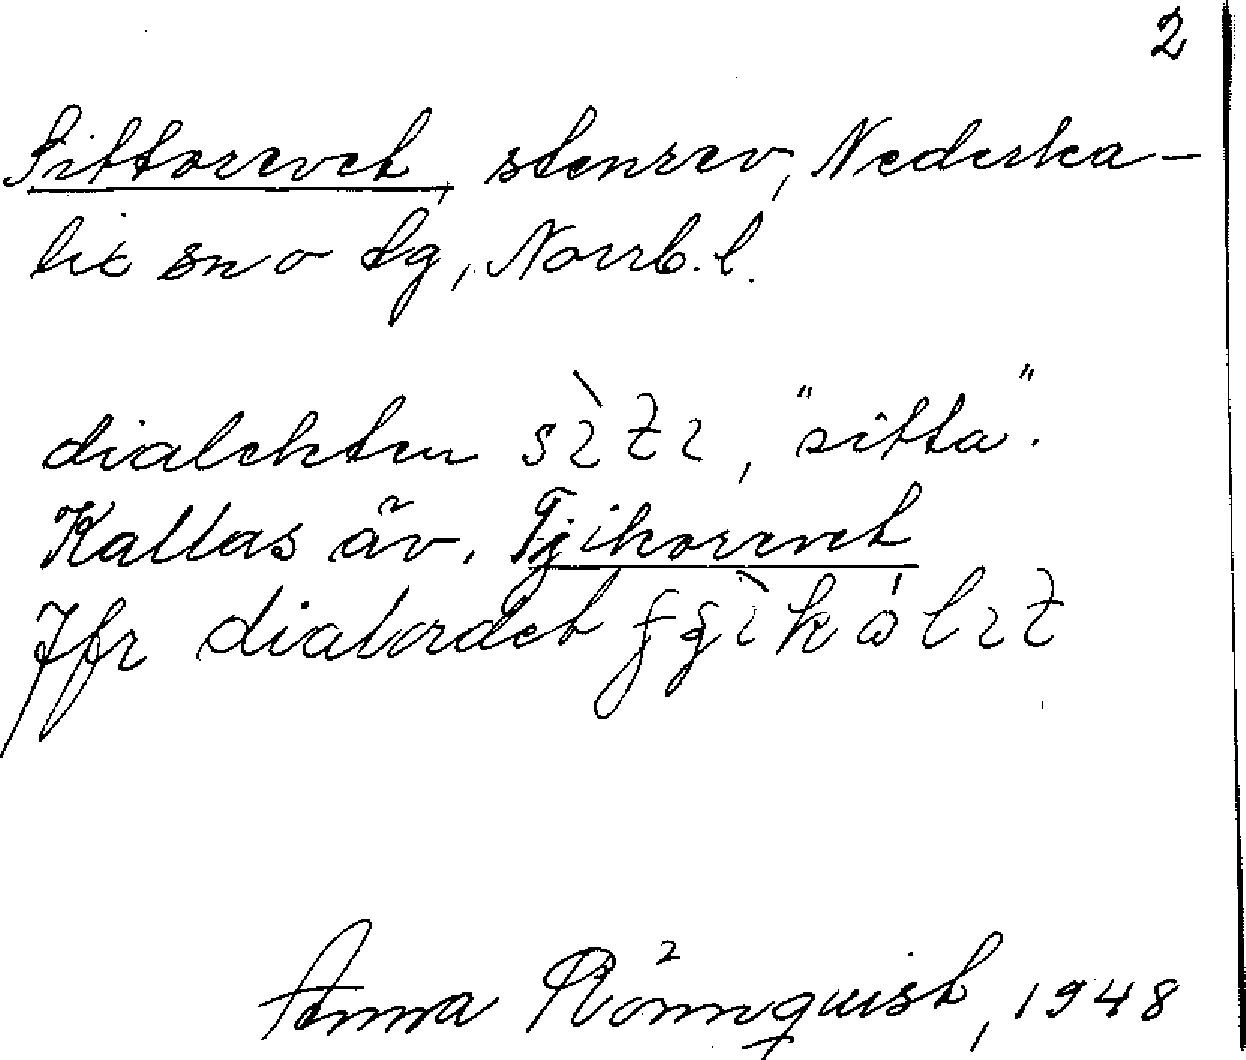 2
Sittorevet, stenrev, Nederka-
lix sn o tg, Norrb. l.
dialekten , "sitta".
Kallas äv. Tjikorevet
Jfr dialordet
Anna Rönnquist, 1948